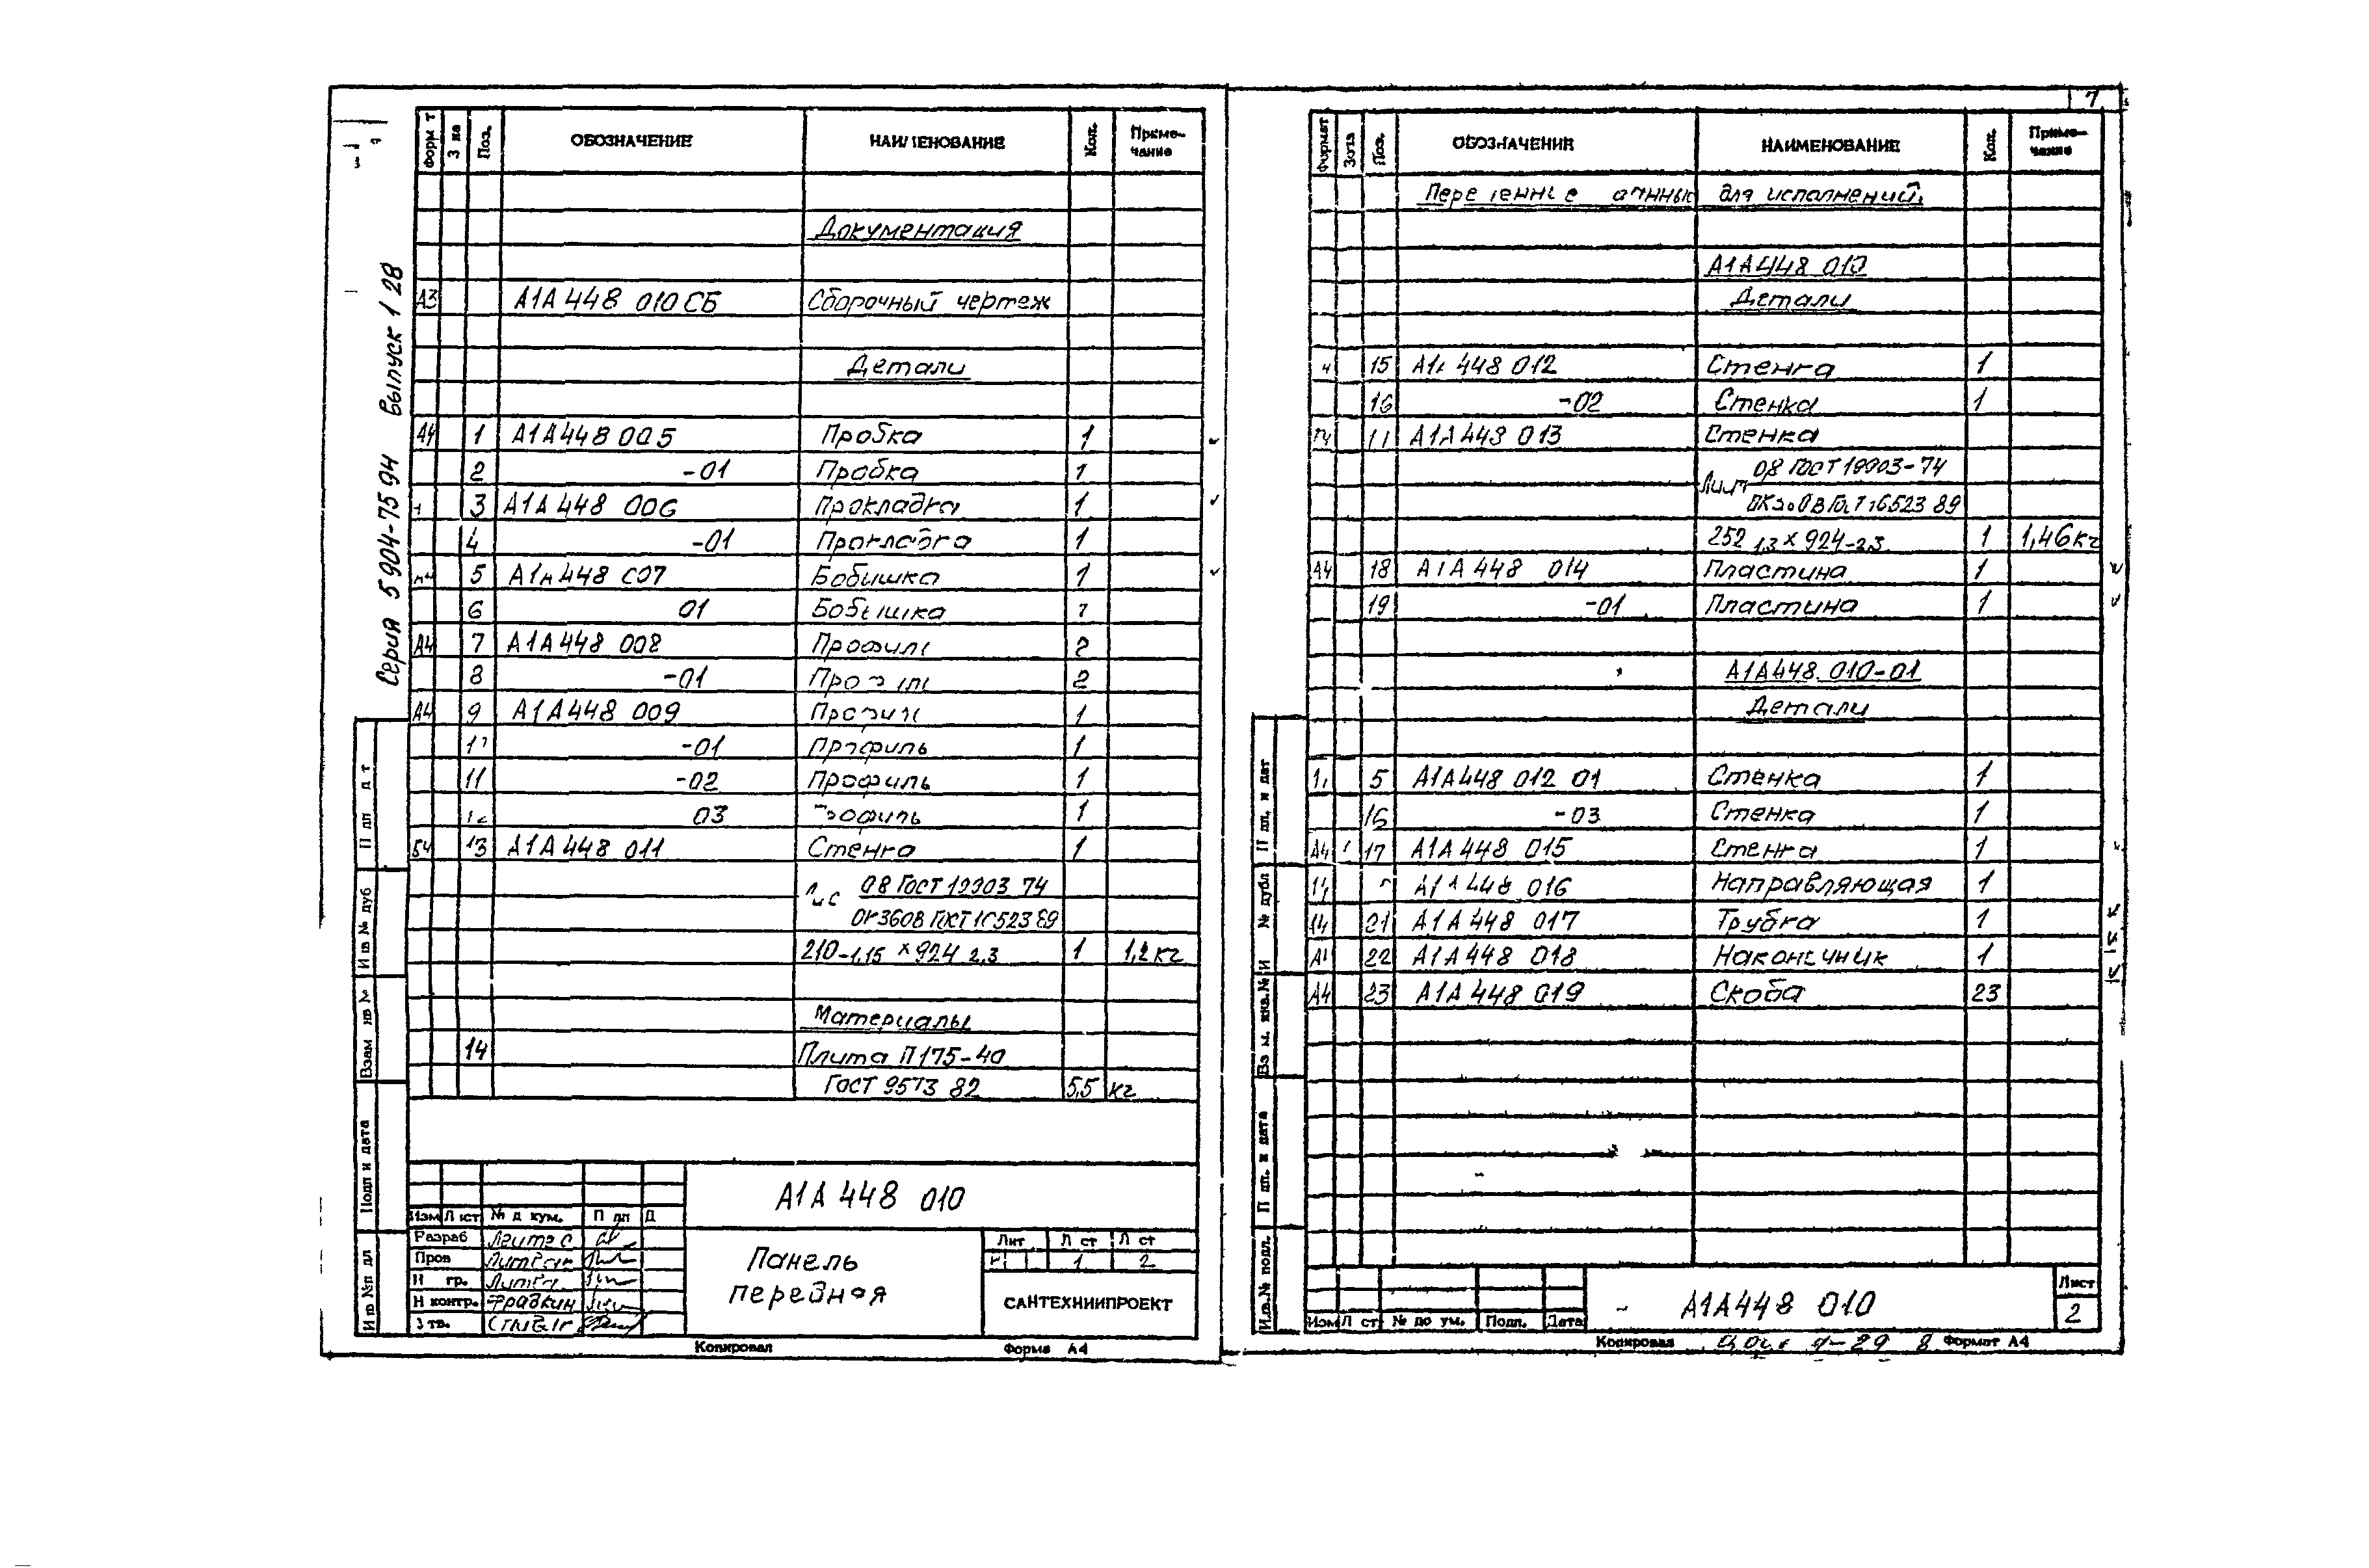 7
Серия 5 904-75 94 Выпуск 1 28
Поз. ОБОЗНАЧЕНИЕ НАИМЕНОВАНИЕ Кол. Приме-
чание
Документация
А3 А1А 448 010 СБ Сборочный чертеж
Детали
А4 1 А1А 448 005 Пробка 1
2 -01 Пробка 1
3 А1А 448 006 Прокладка 1
4 -01 Прокладка 1
5 А1А 448 007 Бобышка 1
6 01 Бобышка 1
А4 7 А1А 448 008 Профиль 2
8 -01 Профиль 2
А4 9 А1А 448 009 Профиль 1
-01 Профиль 1
11 -02 Профиль 1
03 Профиль 1
БЧ 13 А1А 448 011 Стенка 1
08 ГОСТ 19903 74
ОК360В ГОСТ 16523 89
210-1,15 х 924 2,3 1 1,2 кг
Материалы
14 Плита П 175-40
ГОСТ 9573 82 5,5 кг
А1А 448 010
Изм № д кум.
Разраб
Пров
Н контр. Фрадкин
Панель
передная
Лит Л ст Л ст
1 2
САНТЕХНИИПРОЕКТ
Копировал Форма А4
Инв № дуб
Подп и дата
Формат Зона Поз. ОБОЗНАЧЕНИЕ НАИМЕНОВАНИЕ Кол. Приме-
чание
для исполнений.
А1А 448 010
Детали
15 А1А 448 012 Стенка 1
16 -02 Стенка 1
А1А 448 013 Стенка
Лист 08 ГОСТ 19903-74
ОК360В ГОСТ 16523 89
252 1,3 х 924-2,3 1 1,46 кг
А4 18 А1А 448 014 Пластина 1
19 -01 Пластина 1
А1А 448 010-01
Детали
5 А1А 448 012 01 Стенка 1
16 -03 Стенка 1
А4 17 А1А 448 015 Стенка 1
А1А 448 016 Направляющая 1
21 А1А 448 017 Трубка 1
22 А1А 448 018 Наконечник 1
А4 23 А1А 448 019 Скоба 23
А1А 448 010
Лист
2
Изм Л ст № до ум. Подп. Дата
Копировал Формат А4